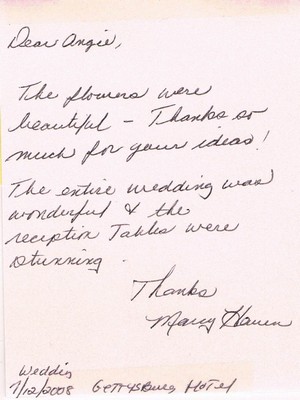 Dear Angie,
The flowers were
beautiful - Thanks so
much for your ideas!
The entire wedding was
wonderful & the
reception Tables were
stunning.
Thanks
Marcy
Wedding
7/12/2008 Gettysburg Hotel